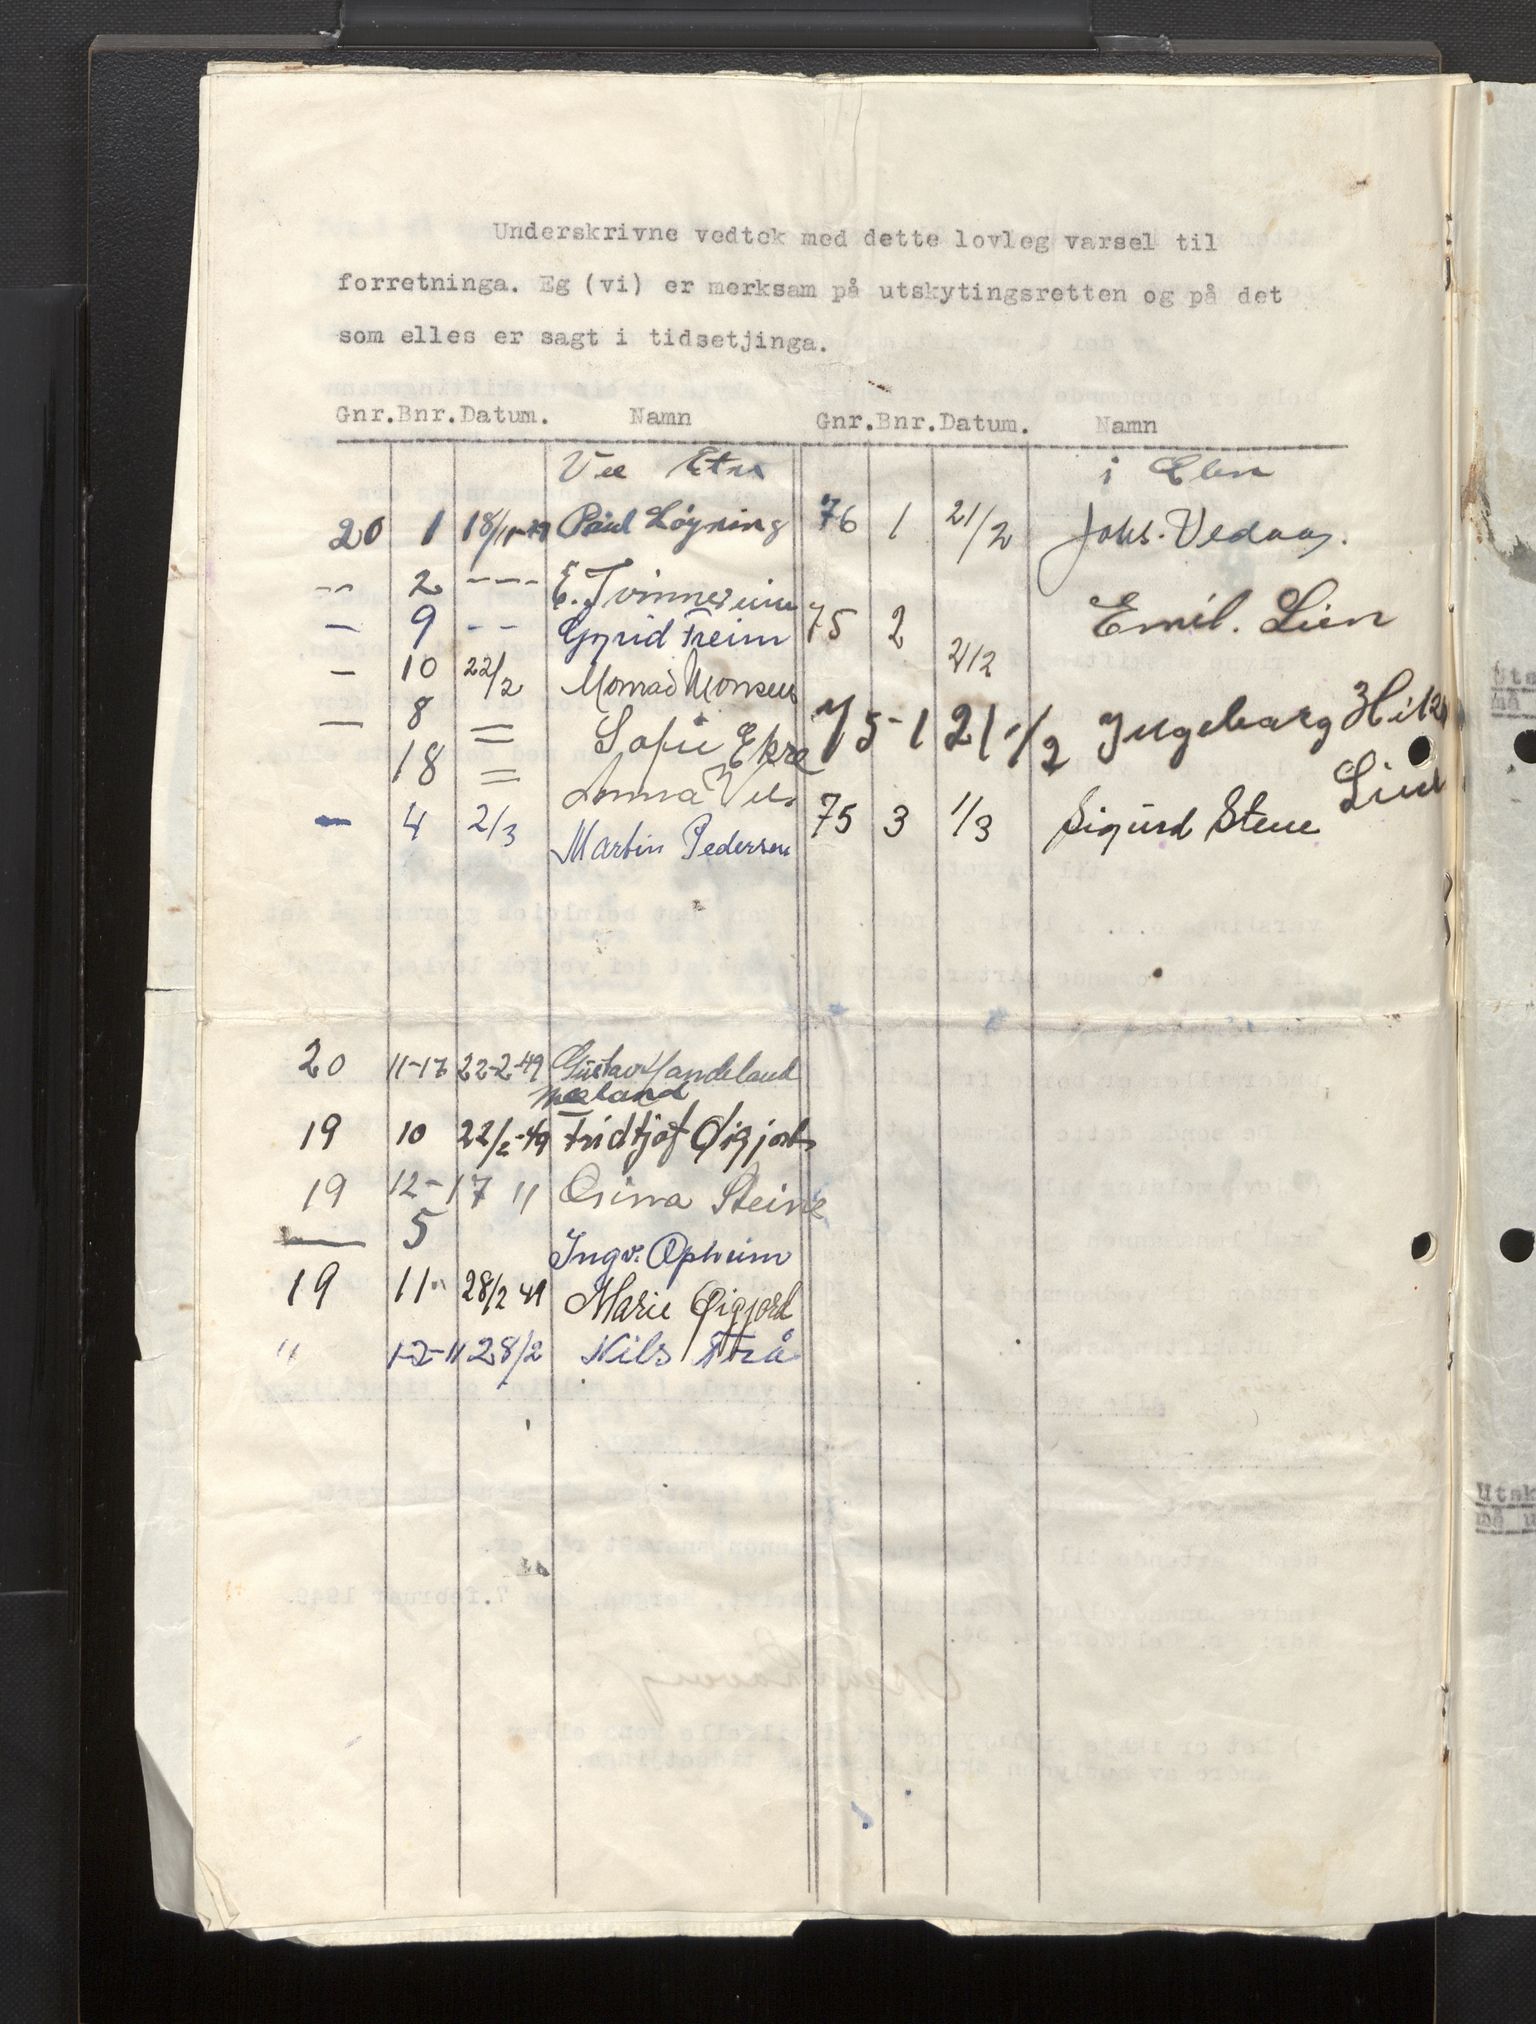 Underskrivne vedtek med dette lovleg varsel til
forretninga. Eg (vi) er merksam på utskytingsretten og på det
som elles er sagt i tidsetjinga.
Gnr. Bnr. Datum. Namn Gnr. Bnr. Datum. Namn
20 1 Pául Löyning
-- 2 ---- E. Tvinnereim
— 9 -- Gyrid Freim
— 10 22/2 Monrad Monsen
— 8 = Sofie Ekre
18 =
— 4 2/3 Martin Pedersen
20 11-17 22-2-49 Gustav Mandeland
19 10 22/2-49 Fridtjof
19 12-17 " Steine
— 5 Ingv. Opheim
19 11 28/2 49 Marie Øigjord
" 1-2-11 28/2 Nils Trå
i
76 1 21/2 Johs. Vedaas.
75 2 21/2 Emil. Lien
75-1 21/2 Ingebarg
75 3 1/3 Sigurd Stene
Utsk
må u